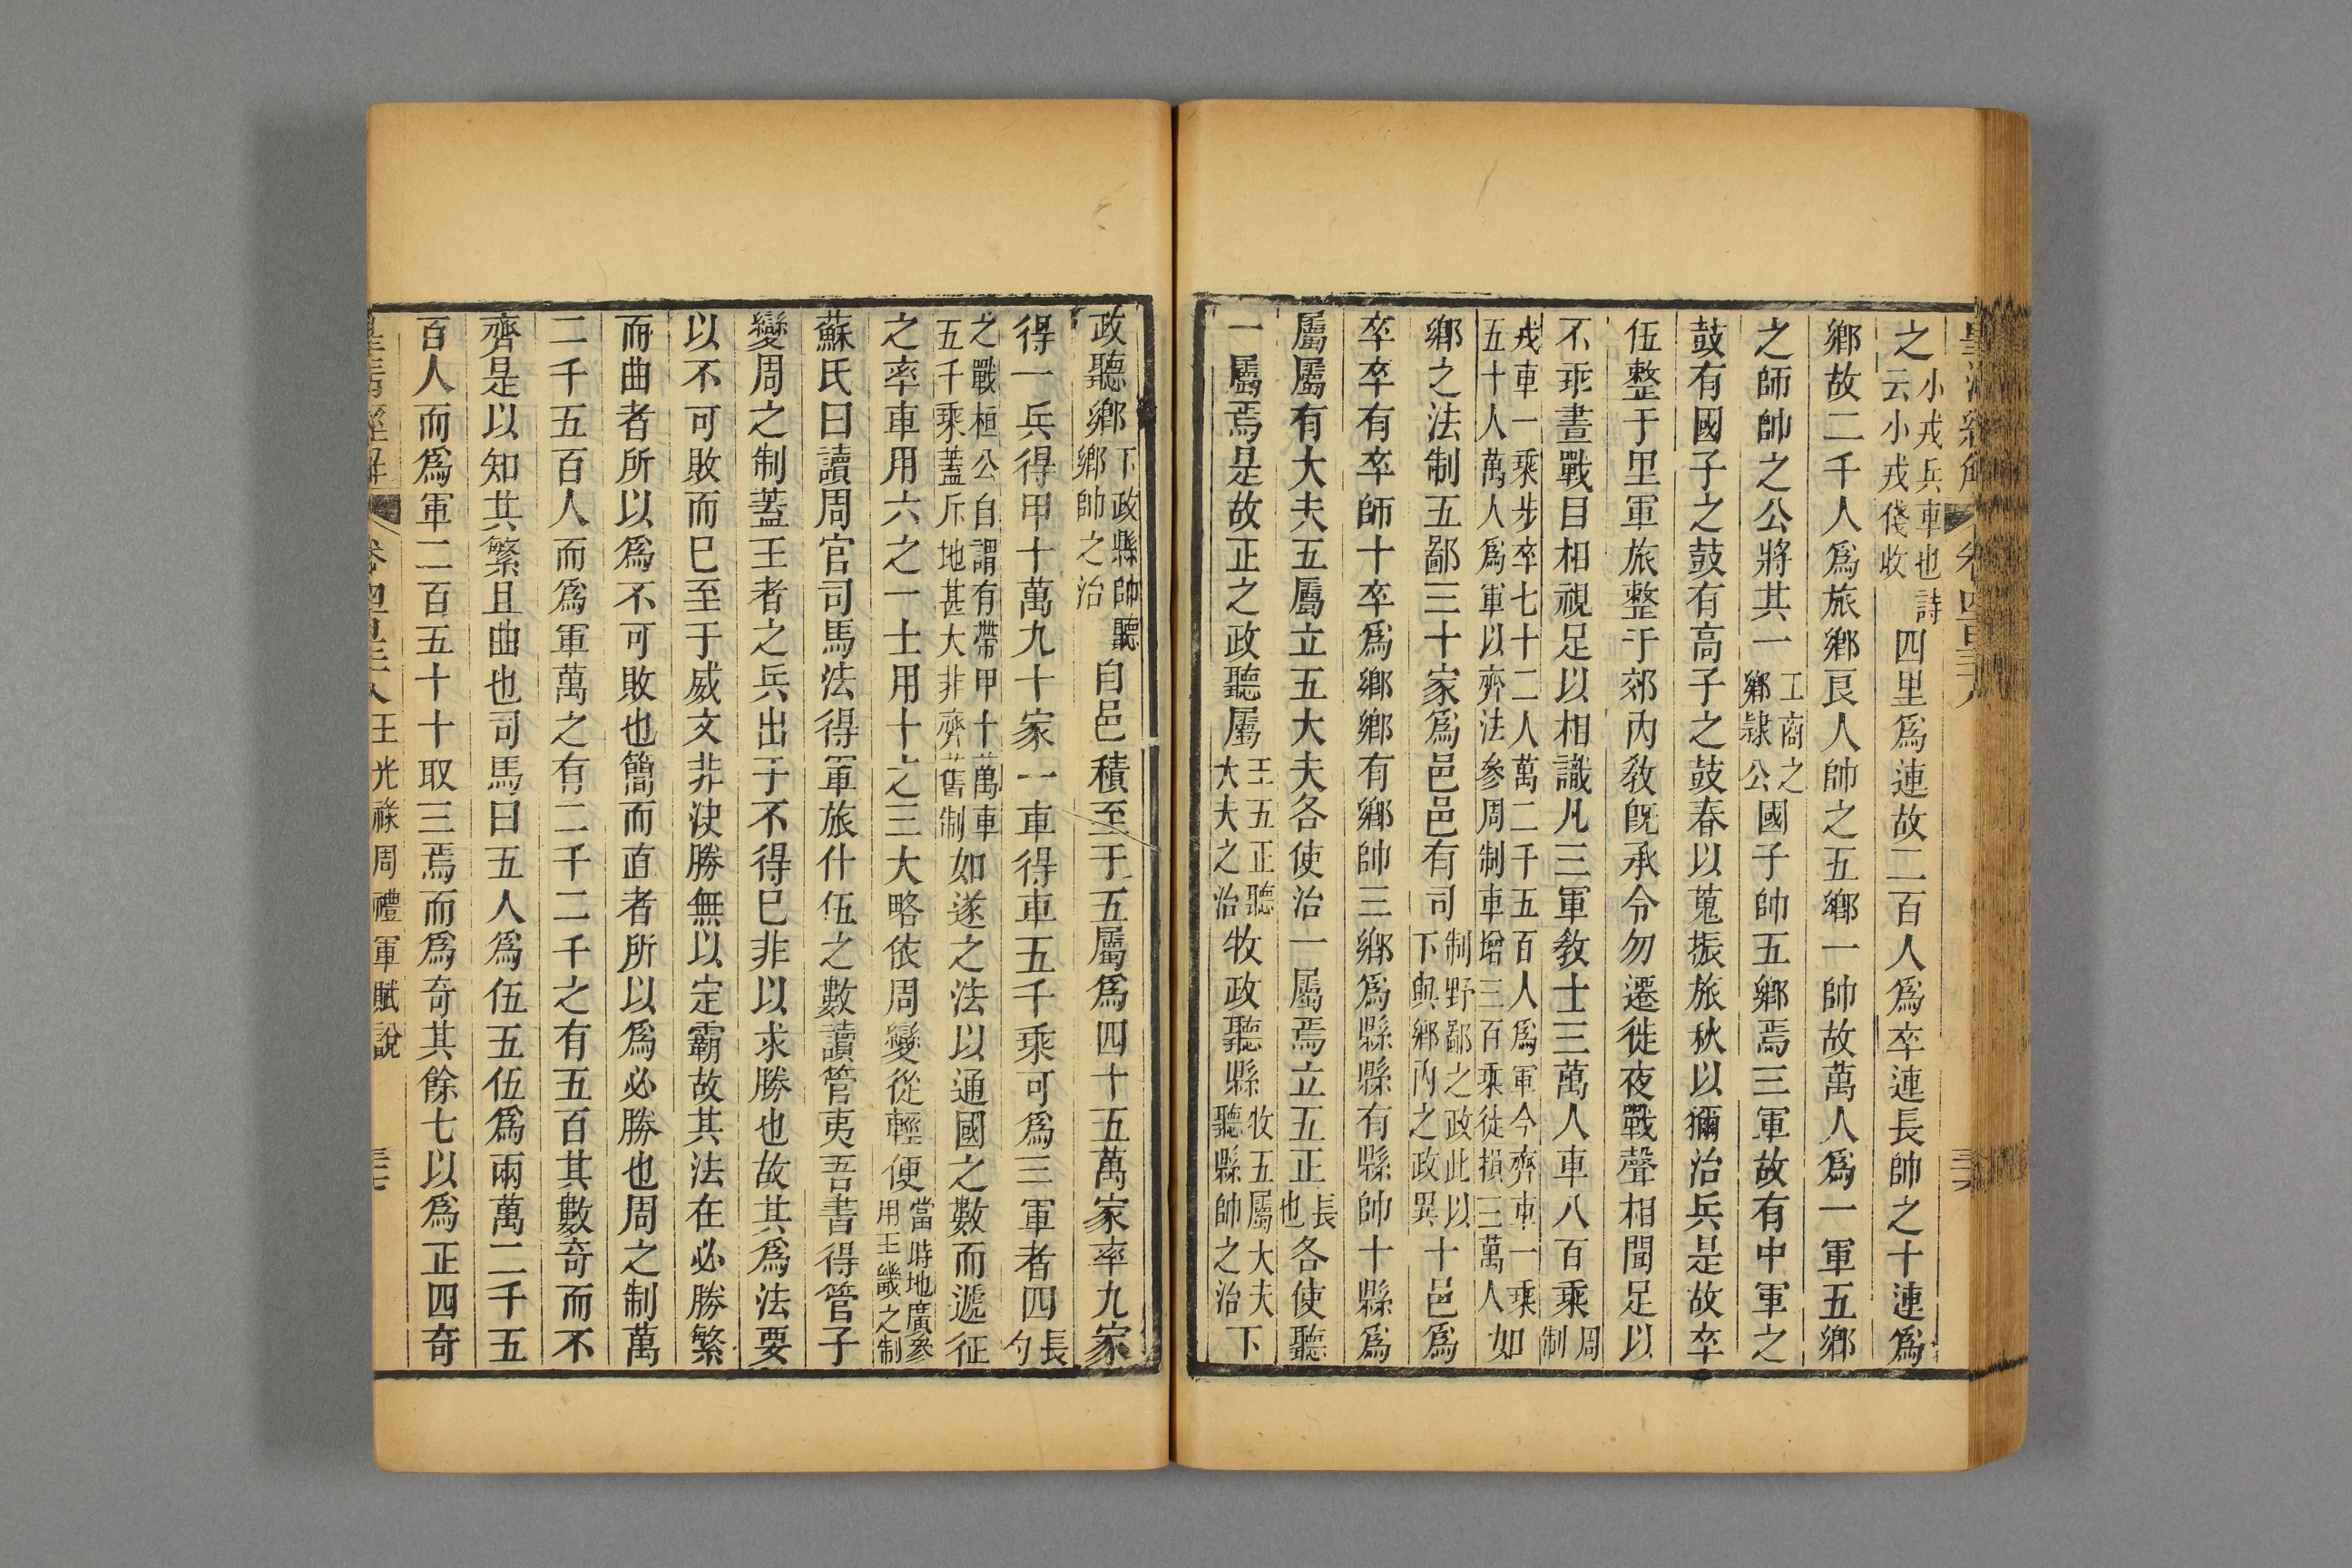 之小戎兵車也詩云小戎俴收四里爲連故二百人爲卒連長帥之十連爲
鄉故二千人爲旅鄉良人帥之五鄉一帥故萬人爲一軍五鄉
之師帥之公將其一工商之鄉隸公國子帥五鄉焉三軍故有中軍之
鼓有國子之鼓有高子之鼓春以蒐振旅秋以獮治兵是故卒
伍整于里軍旅整于郊內敎旣承令勿遷徙夜戰聲相聞足以
不乖晝戰目相視足以相識凡三軍敎士三萬人車八百乘周制
戎車一乘步卒七十二人萬二千五百人爲軍今齊車一乘五十人萬人爲軍以齊法參周制車增三百乘徒損三萬人如
鄉之法制五鄙三十家爲邑邑有司制野鄙之政此以下與鄉內之政異十邑爲
卒卒有卒師十卒爲鄉鄉有鄉帥三鄉爲縣縣有縣帥十縣爲
屬屬有大夫五屬立五大夫各使治一屬焉立五正長也各使聽
一屬焉是故正之政聽屬王五正聽大夫之治牧政聽縣牧五屬大夫聽縣帥之治下
政聽鄉下政縣帥聽鄉帥之治自邑積至于五屬爲四十五萬家率九家
得一兵得甲十萬九十家一車得車五千乘可爲三軍者四長勺
之戰桓公自謂有帶甲十萬車五千乘蓋斥地甚大非齊舊制如遂之法以通國之數而遞征
之率車用六之一士用十之三大略依周變從輕便當時地廣參用王畿之制
蘇氏曰讀周官司馬法得軍旅什伍之數讀管夷吾書得管子
變周之制蓋王者之兵出于不得已非以求勝也故其爲法要
以不可敗而已至于威文非決勝無以定霸故其法在必勝繁
而曲者所以爲不可敗也簡而直者所以爲必勝也周之制萬
二千五百人而爲軍萬之有二千二千之有五百其數奇而不
齊是以知其繁且曲也司馬曰五人爲伍五伍爲兩萬二千五
百人而爲軍二百五十十取三焉而爲奇其餘七以爲正四奇
王光祿周禮軍賦說